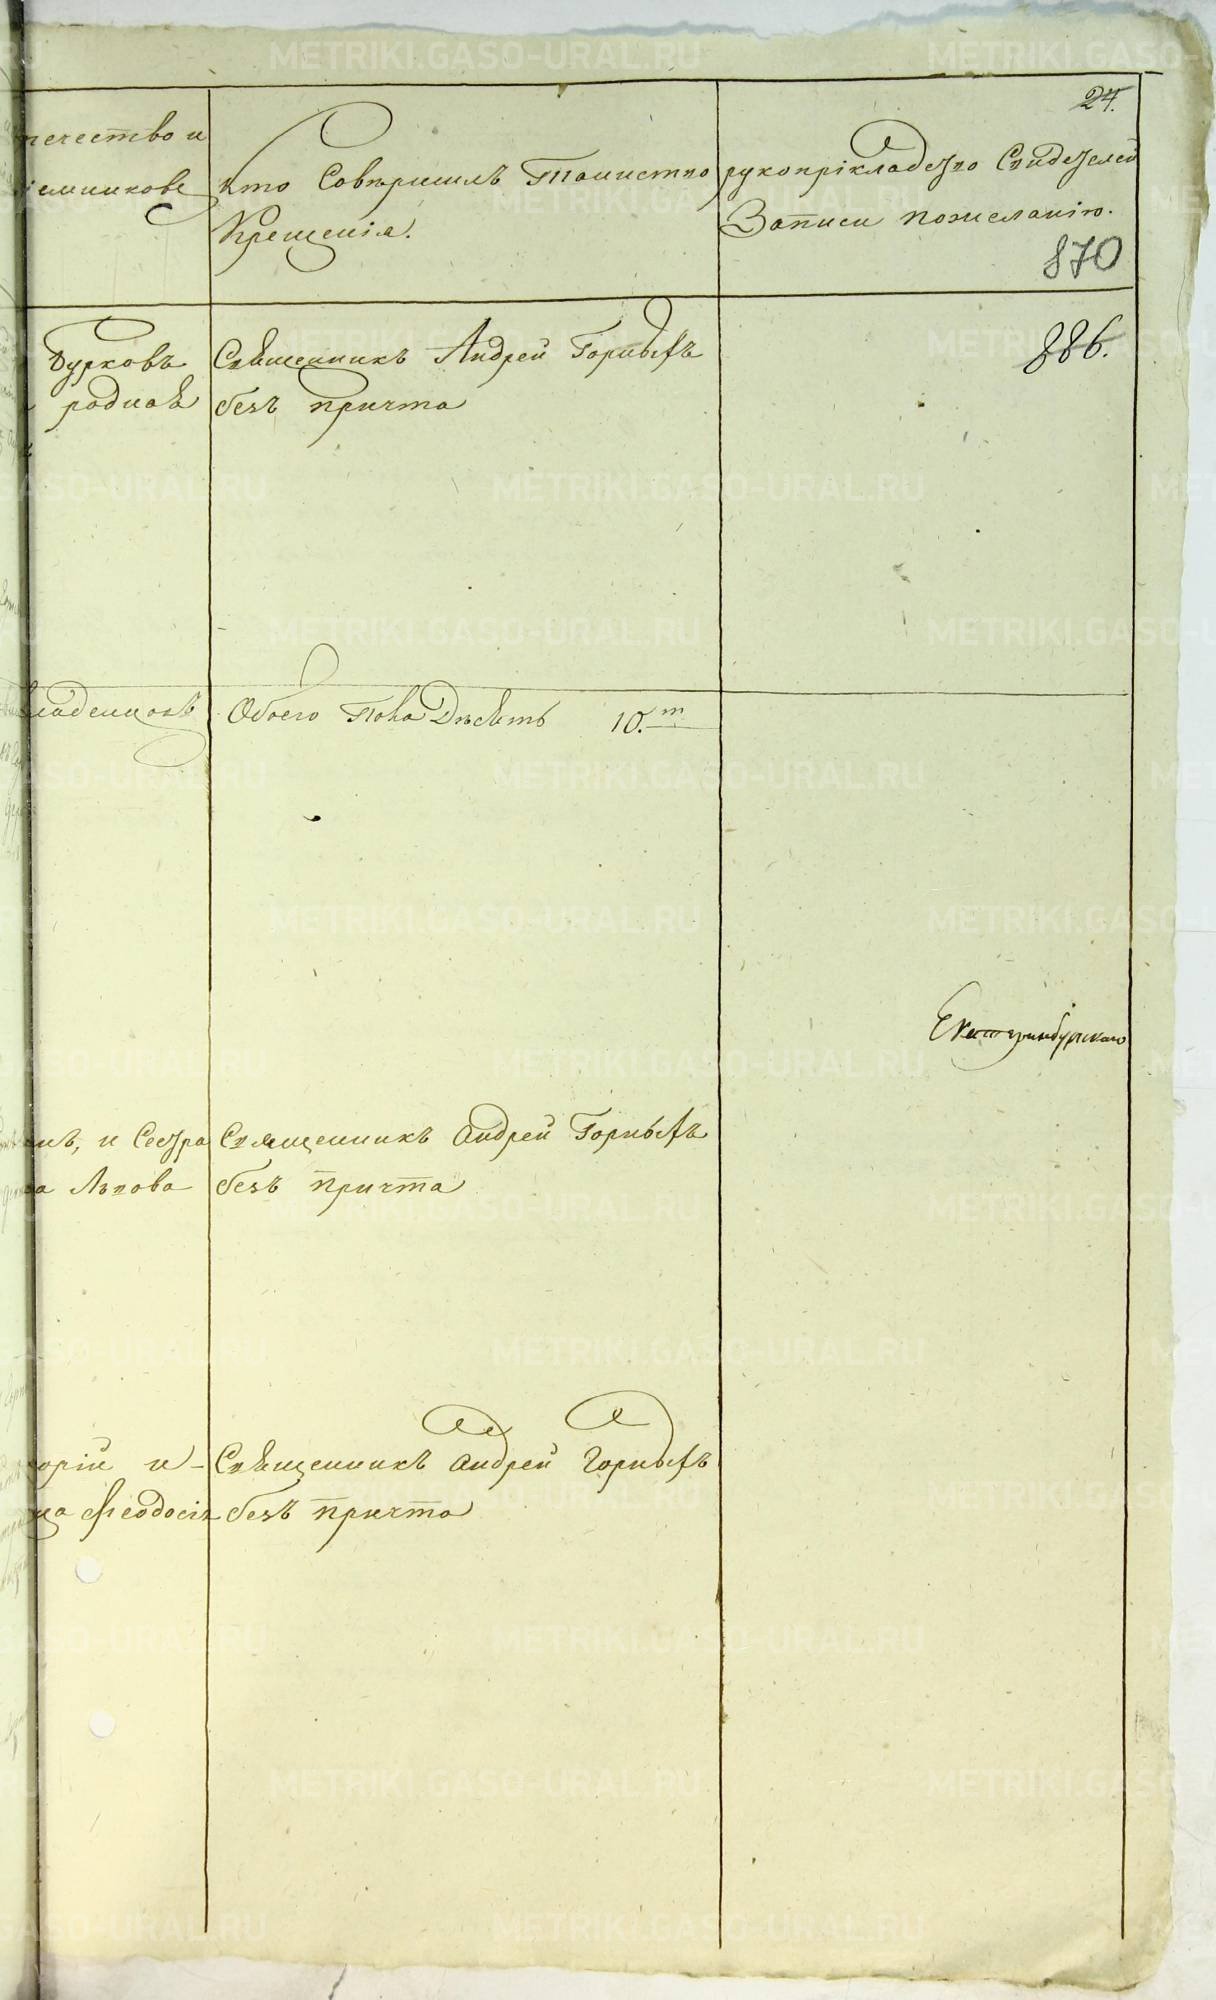 24.
течество и
іемниковъ
Кто Совершилъ Таинство
Крещенія.
рукоприкладство Свидетелей
Записи пожеланію.
870
886.
Бурковъ
родная
Священникъ Андрей Горныхъ
безъ причта
младенцовъ
Обоего Пола Дѣсять 10.ть
Екатеринбурскаго
и Сестра
Львова
Священникъ Андрей Горныхъ
безъ причта
горій и
ца Феодосія
Священникъ Андрей Горныхъ
безъ причта
METRIKI.GASO-URAL.RU